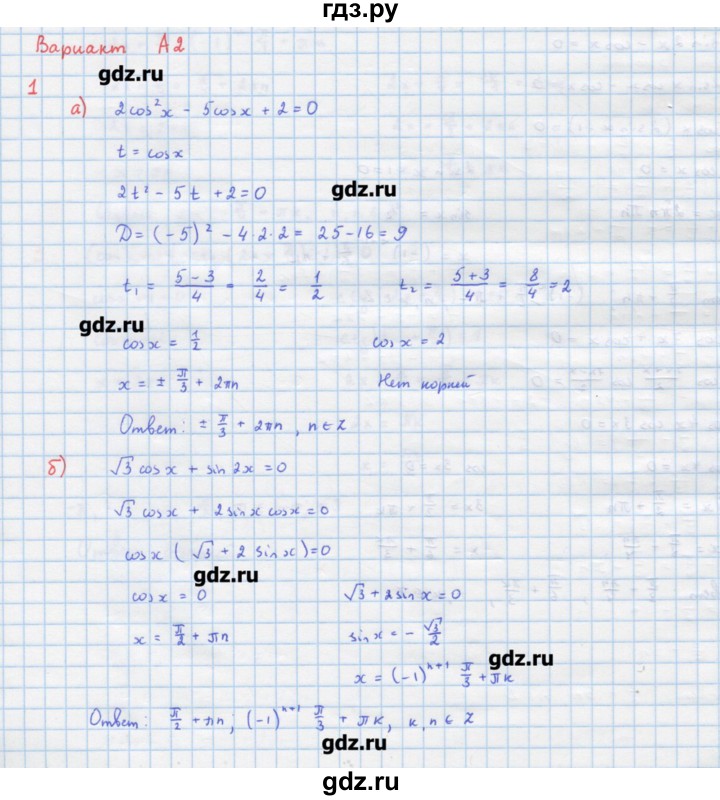 гдз.ру
Вариант А2
gdz.ru
1
а) 2cos²x - 5cosx + 2 = 0
t = cosx
2t² - 5t + 2 = 0
gdz.ru
D = (-5)² - 4·2·2 = 25-16 = 9
t₁ = (5-3)/4 = 2/4 = 1/2 t₂ = (5+3)/4 = 8/4 = 2
gdz.ru
cosx = 1/2 cosx = 2
x = ± π/3 + 2πn Нет корней
Ответ: ± π/3 + 2πn, n∈Z
б) √3 cosx + sin2x = 0
√3 cosx + 2sinx cosx = 0
cosx (√3 + 2 sinx) = 0
gdz.ru
cosx = 0 √3 + 2sinx = 0
x = π/2 + πn sinx = - √3/2
gdz.ru
x = (-1)ⁿ⁺¹ π/3 + πк
Ответ: π/2 + πn; (-1)ⁿ⁺¹ π/3 + πк, к, n ∈ Z
gdz.ru
gdz.ru